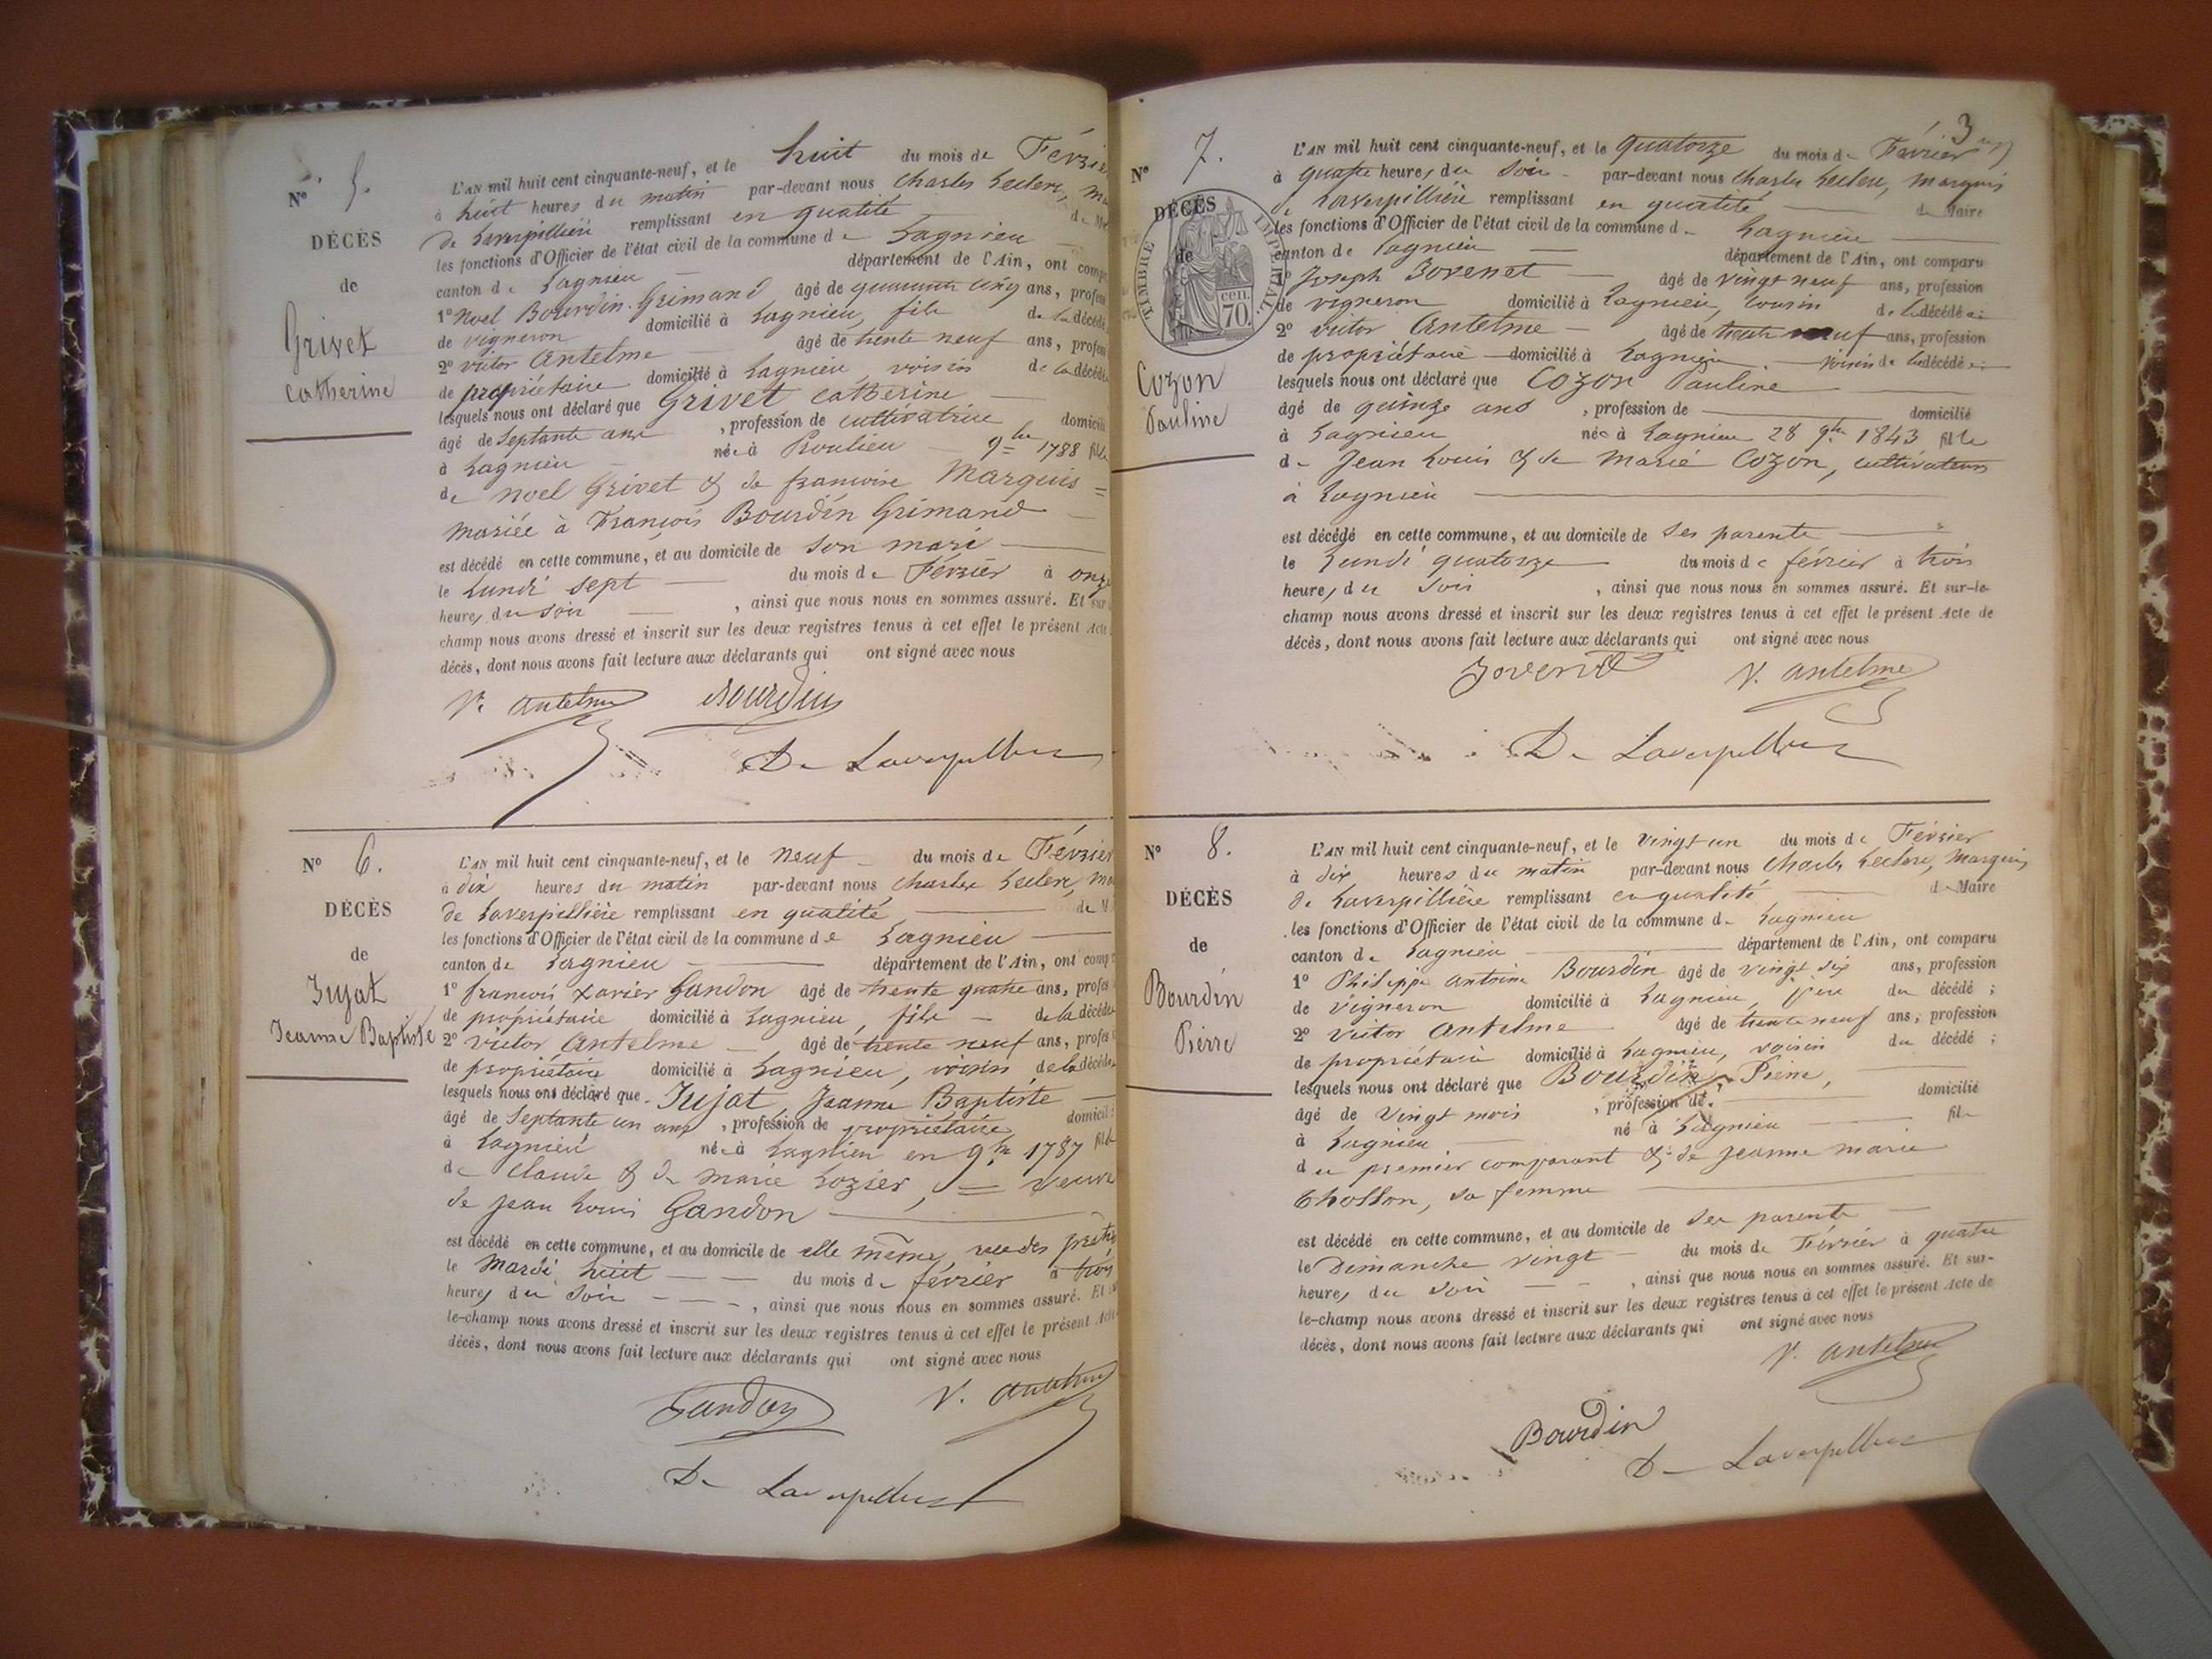 N° 5.
DÉCÈS
de
Grivet
Catherine
L'AN mil huit cent cinquante-neuf, et le huit du mois de Février
à huit heures du matin par-devant nous Charles Leclerc, Ma
de Laverpillière remplissant en qualité de M
les fonctions d'Officier de l'état civil de la commune de Lagnieu
canton de Lagnieu département de l'Ain, ont comp
1° Noel Bourdin Grimand âgé de quarante cinq ans, profess
de vigneron domicilié à Lagnieu, fils de la décédé
2° Victor Antelme âgé de trente neuf ans, profess
de propriétaire domicilié à Lagnieu, voisin de la décédé
lesquels nous ont déclaré que Grivet Catherine
âgé de Septante ans, profession de cultivatrice domicili
à Lagnieu née à Proulieu 9bre 1788 fille
de Noel Grivet & de françoise Marquis =
mariée à François Bourdin Grimand
est décédé en cette commune, et au domicile de son mari
le Lundi sept du mois de Février à onze
heures du soir, ainsi que nous nous en sommes assuré. Et sur
champ nous avons dressé et inscrit sur les deux registres tenus à cet effet le présent Acte
décès, dont nous avons fait lecture aux déclarants qui ont signé avec nous
V. Antelme Bourdin
De Laverpilliere
N° 6.
DÉCÈS
de
Jujat
Jeanne Baptiste
L'AN mil huit cent cinquante-neuf, et le neuf du mois de Février
à dix heures du matin par-devant nous Charles Leclerc, Ma
de Laverpillière remplissant en qualité de M
les fonctions d'Officier de l'état civil de la commune de Lagnieu
canton de Lagnieu département de l'Ain, ont comp
1° françois Xavier Gandon âgé de trente quatre ans, profes
de propriétaire domicilié à Lagnieu, fils de la décédée
2° Victor Antelme âgé de trente neuf ans, profes
de propriétaire domicilié à Lagnieu, voisin de la décédée
lesquels nous ont déclaré que Jujat Jeanne Baptiste
âgé de Septante un ans, profession de propriétaire domicil
à Lagnieu née à Lagnieu en 9bre 1787 fille
de Claude & de Marie Lozier, = veuve
de Jean Louis Gandon
est décédé en cette commune, et au domicile de elle même, rue des prêtres
le Mardi huit du mois de février à trois
heures du soir, ainsi que nous nous en sommes assuré. Et
le-champ nous avons dressé et inscrit sur les deux registres tenus à cet effet le présent Acte
décès, dont nous avons fait lecture aux déclarants qui ont signé avec nous
Gandon V. Antelme
De Laverpilliere
3
N° 7.
DÉCÈS
de
TIMBRE IMPÉRIAL
70 cen.
Cozon
Pauline
L'AN mil huit cent cinquante-neuf, et le quatorze du mois de Février
à quatre heures du soir par-devant nous Charles Leclerc, Marquis
de Laverpillière remplissant en qualité de Maire
les fonctions d'Officier de l'état civil de la commune de Lagnieu
canton de Lagnieu département de l'Ain, ont comparu
1° Joseph Jovenet âgé de vingt neuf ans, profession
de vigneron domicilié à Lagnieu, cousin de la décédée;
2° Victor Antelme âgé de trente neuf ans, profession
de propriétaire domicilié à Lagnieu voisin de la décédée;
lesquels nous ont déclaré que Cozon Pauline
âgé de quinze ans, profession de domicilié
à Lagnieu née à Lagnieu 28 9bre 1843 fille
de Jean Louis & de Marie Cozon, cultivateurs
à Lagnieu
est décédé en cette commune, et au domicile de ses parents
le Lundi quatorze du mois de février à trois
heures du soir, ainsi que nous nous en sommes assuré. Et sur-le-
champ nous avons dressé et inscrit sur les deux registres tenus à cet effet le présent Acte de
décès, dont nous avons fait lecture aux déclarants qui ont signé avec nous
Jovenet V. Antelme
De Laverpilliere
N° 8.
DÉCÈS
de
Bourdin
Pierre
L'AN mil huit cent cinquante-neuf, et le vingt un du mois de Février
à dix heures du matin par-devant nous Charles Leclerc, Marquis
de Laverpillière remplissant en qualité de Maire
les fonctions d'Officier de l'état civil de la commune de Lagnieu
canton de Lagnieu département de l'Ain, ont comparu
1° Philippe Antoine Bourdin âgé de vingt six ans, profession
de vigneron domicilié à Lagnieu, père du décédé;
2° Victor Antelme âgé de trente neuf ans, profession
de propriétaire domicilié à Lagnieu, voisin du décédé;
lesquels nous ont déclaré que Bourdin, Pierre,
âgé de vingt mois, profession de. domicilié
à Lagnieu né à Lagnieu fils
du premier comparant & de Jeanne Marie
Chollon, sa femme
est décédé en cette commune, et au domicile de ses parents
le Dimanche vingt du mois de Février à quatre
heures du soir, ainsi que nous nous en sommes assuré. Et sur-
le-champ nous avons dressé et inscrit sur les deux registres tenus à cet effet le présent Acte de
décès, dont nous avons fait lecture aux déclarants qui ont signé avec nous
V. Antelme
Bourdin
De Laverpilliere